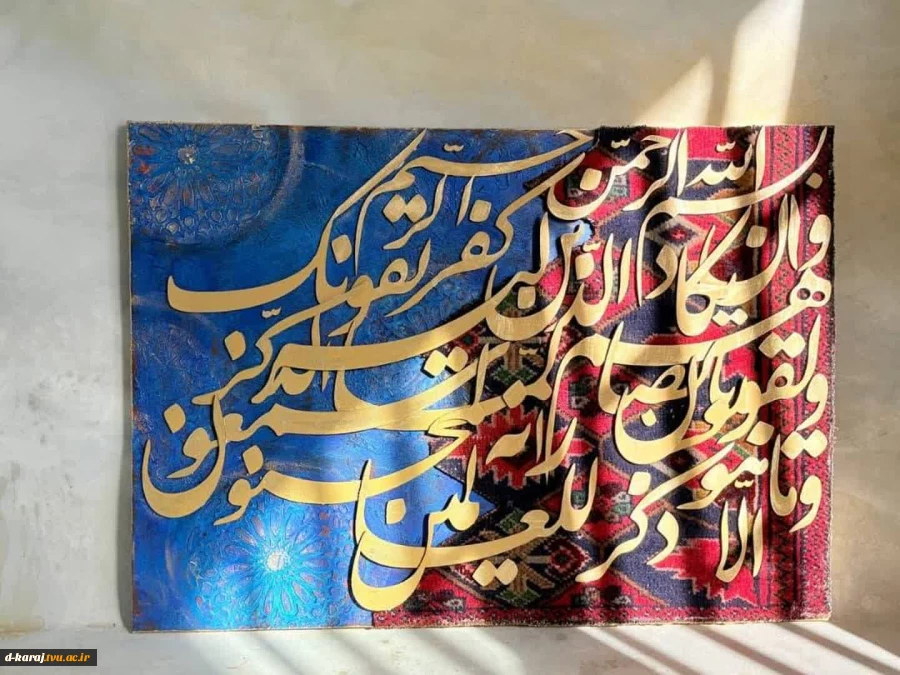 بسم الله الرحمن الرحیم
وان یکاد الذین کفروا لیزلقونک
بابصارهم لما سمعوا الذکر
ویقولون انه لمجنون
وما هو الا ذکر للعالمین
d-karaj.tvu.ac.ir